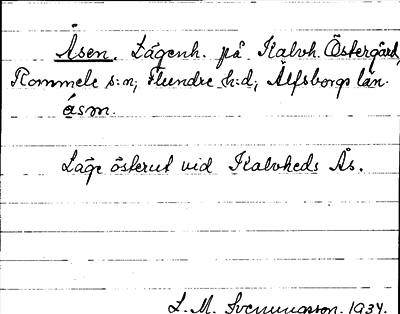 Åsen. Lägenh. på Kalvh. Östergård,
Rommele s:n, Flundre h:d, Älfsborgs län.
åsɷn.
Läge österut vid Kalvheds Ås.
L. M. Svenungsson. 1934.